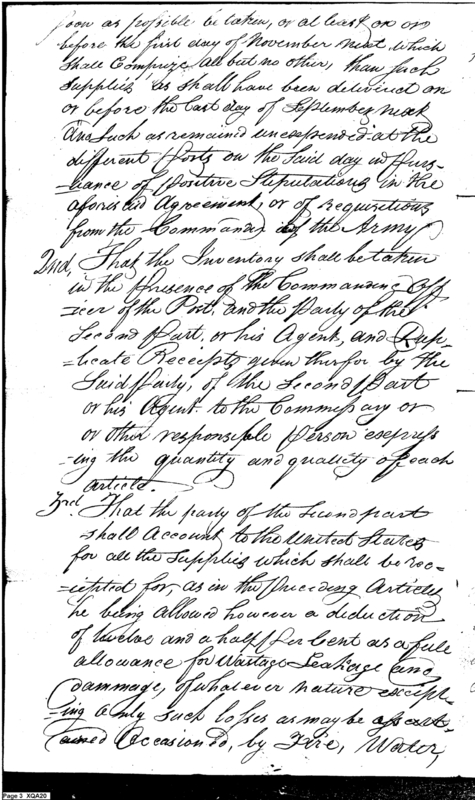 soon as possible be taken, or at least on or
before the first day of November next, which
shall Comprize all but no other, than such
supplies, as shall have been delivered on
or before the last day of September next
And such as remained unexpended at the
different Posts on the said day in Purs-
-uance of positive Stipulations in the
aforisaid Agreement, or of requisitions
from the Commander of the Army
2nd, That the Inventory shall be taken
in the Presence of the Commanding off
-icer of the Post, and the Party of the
Second Part, or his Agent, and Dup-
-licate Receipts given therfor by the
Said Party, of the Second Part
or his Agent to the Commissary or
or other responsible Person express
-ing the quantity and quality of each
Article.
3rd. That the party of the Second part
shall Account to the United States
for all the Supplies which shall be rec-
-eipted for, as in the Preceeding Article,
he being Allowed however a deduction
of twelve and a half Per Cent as a full
allowance for Wastage Leakage and
dammage, of whatever nature except-
-ing only such losses as may be
Occasiond, by Fire, Water,
Page 3 XQA20